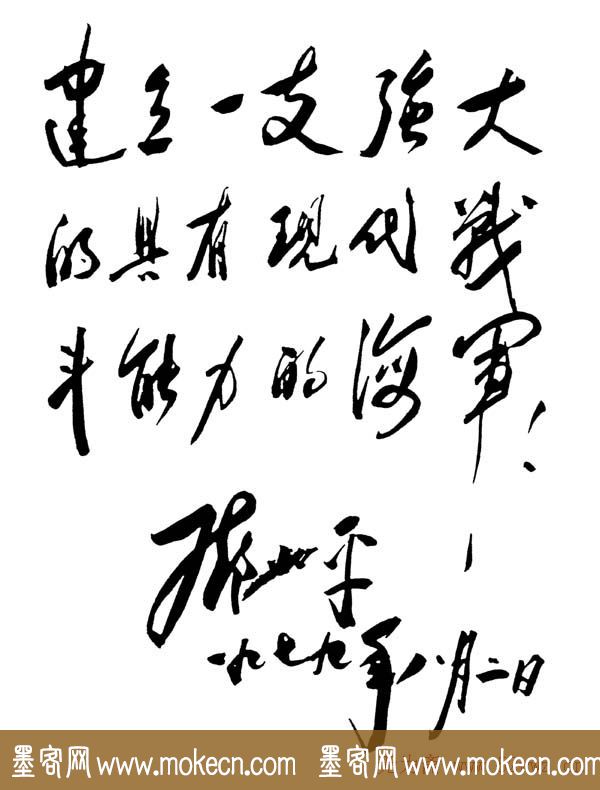 建立一支強大
的具有現代戰
斗能力的海軍！
鄧小平
一九七九年八月二日
墨客网 www.mokecn.com 墨客网 www.mokecn.com